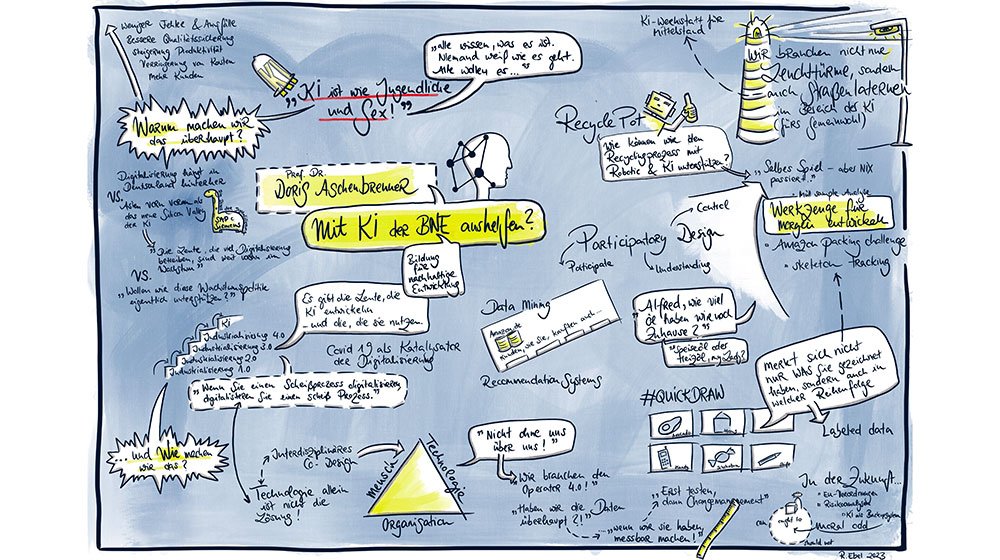 Weniger Fehler & Ausfälle
Bessere Qualitätssicherung
Steigerung Produktivität
Verringerung von Kosten
Mehr Kunden
Warum machen wir
das überhaupt?
"KI ist wie Jugendliche
und Sex!"
"Alle wissen, was es ist.
Niemand weiß wie es geht.
Alle wollen es..."
KI-Werkstatt für
Mittelstand
Wir brauchen nicht nur
Leuchttürme, sondern
auch Straßenlaternen
im Bereich der KI
fürs (Gemeinwohl)
RecyclePot
Wie können wir den
Recyclingprozess mit
Robotic & KI unterstützen?
"Selbes Spiel – aber nix
passiert."
Werkzeuge für
morgen entwickeln
Amazon packing challenge
skeleton tracking
Prof. Dr.
Doris Aschenbrenner
Mit KI der BNE aushelfen?
Bildung
für
nachhaltige
Entwicklung
Digitalisierung hängt in
Deutschland hinterher
VS.
Asien vorn
das neue Silicon Valley
der KI
SAP &
Siemens
"Die Leute, die viel Digitalisierung
betreiben, sind weit vorne im
Wachstum"
VS.
"Wollen wir diese Wachstumspolitik
eigentlich unterstützen?"
Control
Participatory Design
Participate
Understanding
Es gibt die Leute, die
KI entwickeln
- und die, die sie nutzen.
KI
Industrialisierung 4.0
Industrialisierung 3.0
Industrialisierung 2.0
Industrialisierung 1.0
Covid 19 als Katalysator
der Digitalisierung
"Wenn Sie einen Scheißprozess digitalisieren,
digitalisieren Sie einen scheiß Prozess."
Data Mining
Amazon.de
Kunden, die sie, kauften auch...
Recommendation Systems
"Alfred, wie viel
Öl haben wir noch
Zuhause?"
"Speiseöl oder
Heizöl, my Lady?"
#QUICKDRAW
Merkt sich nicht
nur WAS Sie gezeichnet
haben, sondern auch in
welcher Reihenfolge
Labeled data
... und Wie machen
wir das?
Interdisziplinäres
Co-Design
Technologie allein
ist nicht die
Lösung!
Mensch
Technologie
Organisation
"Nicht ohne uns
über uns!"
Wir brauchen den
Operator 4.0!
"Haben wir die Daten
überhaupt?!"
...wenn wir sie haben,
messbar machen!"
"Erst testen,
dann Changemanagement"
In der Zukunft...
EU-Verordnungen
Risikoanalysen
can
ought to
should not
moral odd
R. Ebel 2023